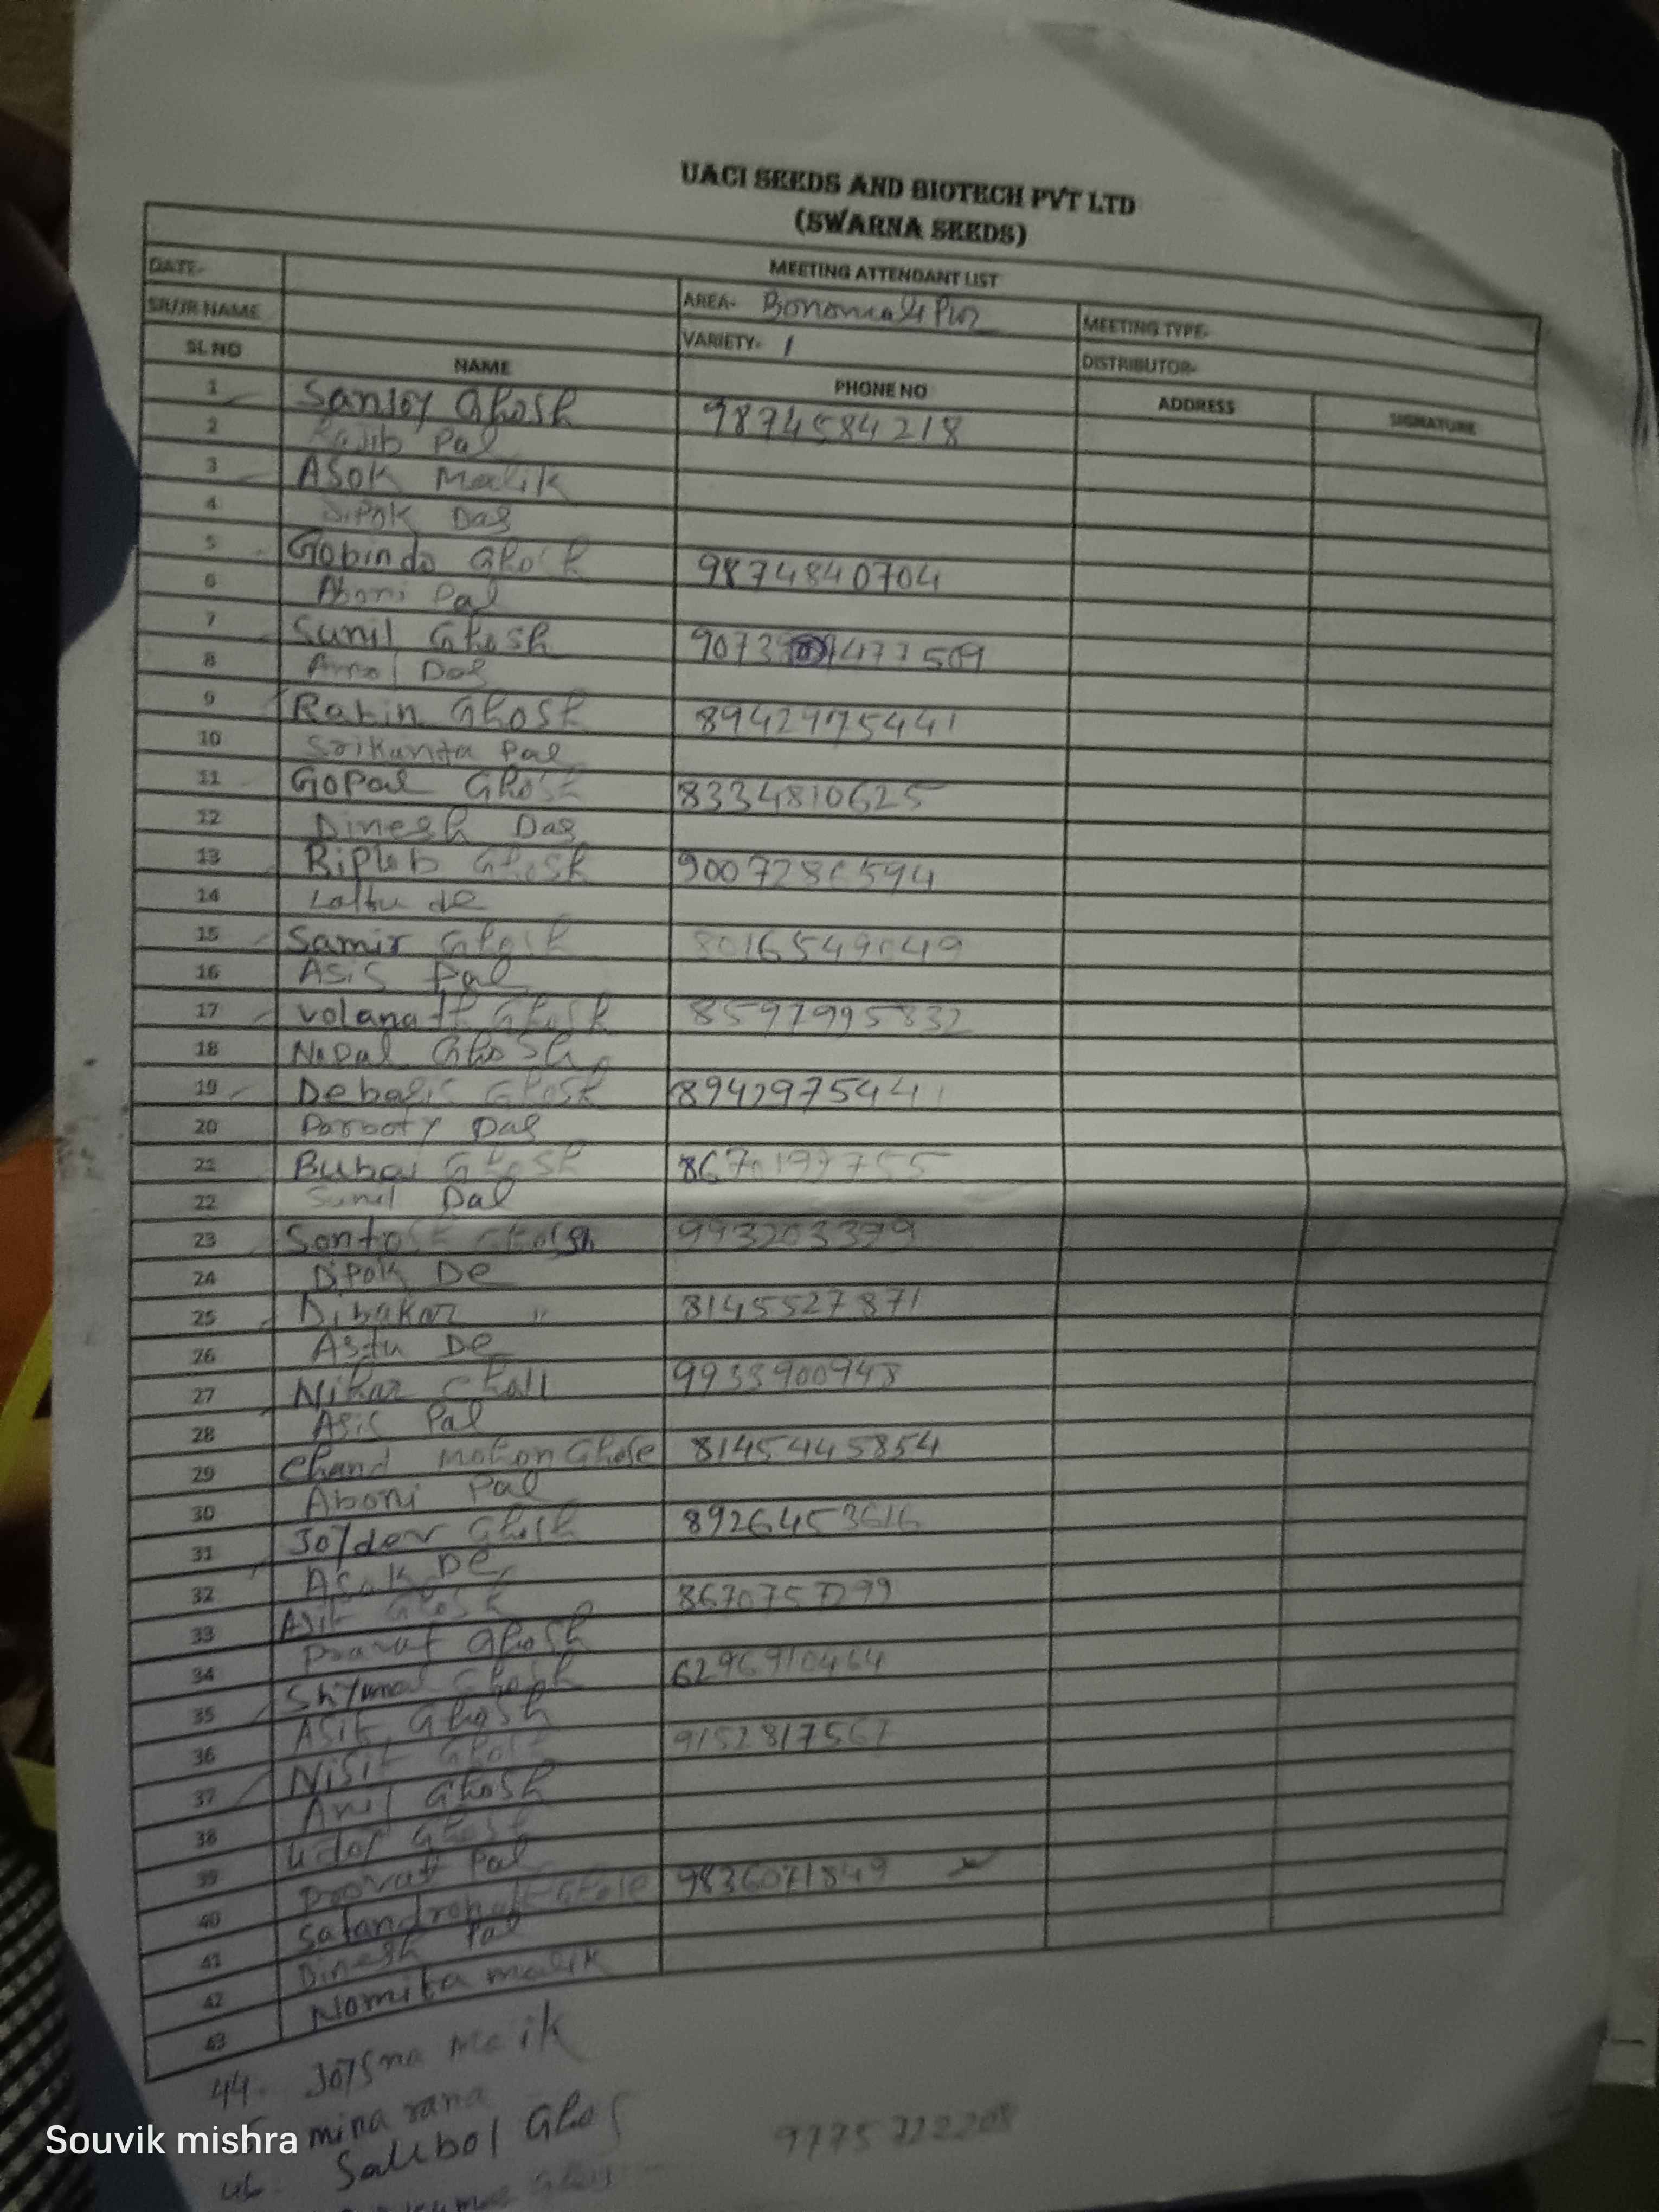 UACI SEEDS AND BIOTECH PVT LTD
(SWARNA SEEDS)
MEETING ATTENDANT LIST
DATE- AREA- MEETING TYPE-
SR/JR NAME VARIETY- 1 DISTRIBUTOR-
SL NO NAME PHONE NO ADDRESS SIGNATURE
1 Sanjoy Ghosh 9874584218
2 Rajib Pal
3 ASOK Malik
4 Dipok Das
5 Gobindo Ghosh 9874840704
6 Aboni Pal
7 Sunil Ghosh
8 Amol Das
9 Rabin Ghosh 8942975441
10 Srikanta Pal
11 Gopal Ghosh 8334810625
12 Dinesh Das
13 Biplab Ghosh
14 Laltu de
15 Samir Ghosh
16 Asis Pal
17 volanath Ghosh 8597995832
18 Nepal Ghosh
19 Debasis Ghosh 8942975441
20 Das
21 Bubai Ghosh
22 Sunil Dal
23 Santosh Ghosh 993203379
24 Dipok De
25 Dibakar " 8145527871
26 Astu De
27 Nihar 9933900948
28 Asis Pal
29 Chand Mohon Ghose 8145445854
30 Aboni Pal
31 Joydev Ghosh 8926453616
32 Asok De
33 Ajit Ghosh 8670757299
34 Provat Ghosh
35 Shyamal Ghosh 6296910464
36 Asit Ghosh
37 Nisit Ghosh 9152817567
38 Anil Ghosh
39 Ghosh
40 Provat Pal
41 Ghose 9836071849
42 Dinesh Pal
43 Nomita malik
44. Jotsna Malik
mina rana
46.
9775722208
Souvik mishra